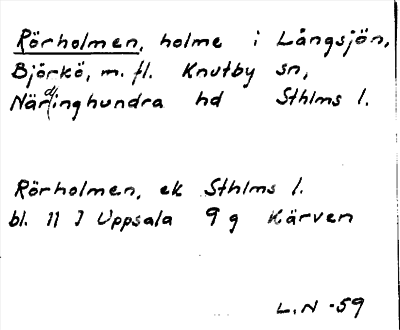 Rörholmen, holme i Långsjön,
Björkö, m. fl. Knutby sn,
Närdinghundra hd Sthlms l.
Rörholmen, ek Sthlms l.
bl. 11 J Uppsala 9 g Kärven
L.N -59